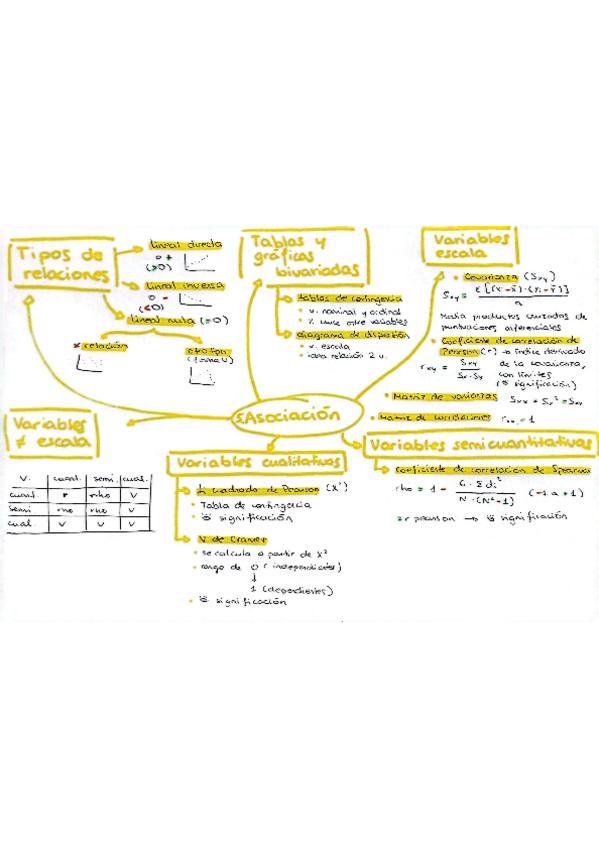 Tipos de
relaciones
lineal directa
o +
(>0)
lineal inversa
o -
(<0)
lineal nula (=0)
× relación
otro tipo
(forma V)
Tablas y
gráficas
bivariadas
tablas de contingencia
v. nominal y ordinal
% unice entre variables
diagrama de dispersión
v. escala
relación 2 v.
Variables
escala
Covarianza (Sxy)
Sxy = Σ[(x-x̄)·(yi-ȳ)]
n
Media productos cruzados de
puntuaciones diferenciales
Coeficiente de correlación de
Pearson (r) → índice derivado
de la covarianza,
con límites
significación)
rxy = Sxy
Sx·Sy
Matriz de varianzas Sxx = Sx² = Sxx
Matriz de correlaciones rxx = 1
5.Asociación
Variables
≠ escala
V. cuant. semi. cual.
cuant. r rho V
semi rho rho V
cual. V V V
Variables cualitativas
cuadrado de Pearson (X²)
Tabla de contingencia
significación
V de Cramer
se calcula a partir de X²
rango de 0 (independientes)
↓
1 (dependientes)
significación
Variables semicuantitativas
Coeficiente de correlación de Spearman
rho = 1 - 6·Σdi²
N·(N²-1)
(-1 a +1)
≈ r pearson → significación